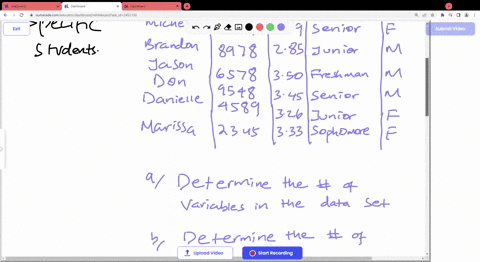 Exit
Submit Video
Students.
Miche 9 Senior F
Brandon 8978 2.85 Junior M
Jason 6578 3.50 Freshman M
Don 9548 3.45 Senior M
Danielle 4589 3.26 Junior F
Marissa 2345 3.33 Sophomore F
a/ Determine the # of
variables in the data set
b, Determine the # of
Upload Video
Start Recording